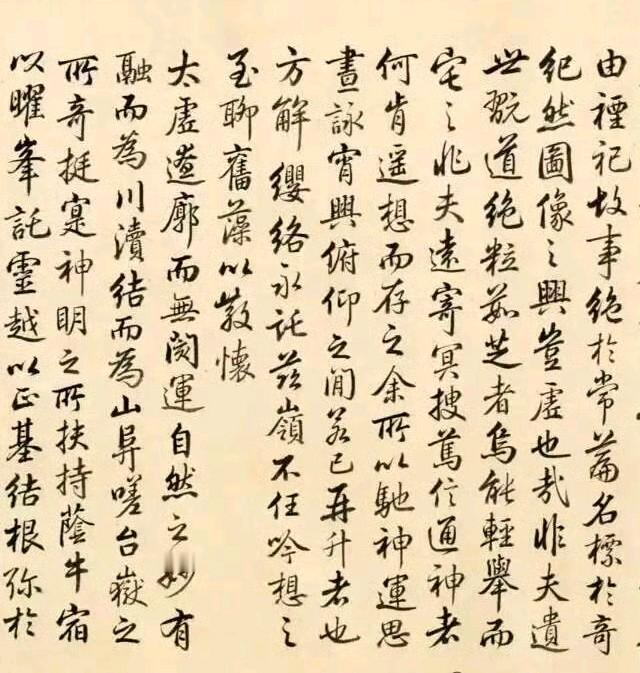 由禋祀故事絕於常篇名標於奇
紀然圖像之興豈虛也哉非夫遺
世翫道絕粒茹芝者烏能輕舉而
宅之非夫遠寄冥搜篤信通神者
何肯遥想而存之余所以馳神運思
晝詠宵興俯仰之間若已再升者也
方解纓絡永託茲嶺不任吟想之
至聊奮藻以散懷
太虛遼廓而無閡運自然之妙有
融而為川瀆結而為山阜嗟台嶽之
所奇挺寔神明之所扶持蔭牛宿
以曜峯託靈越以正基結根弥於